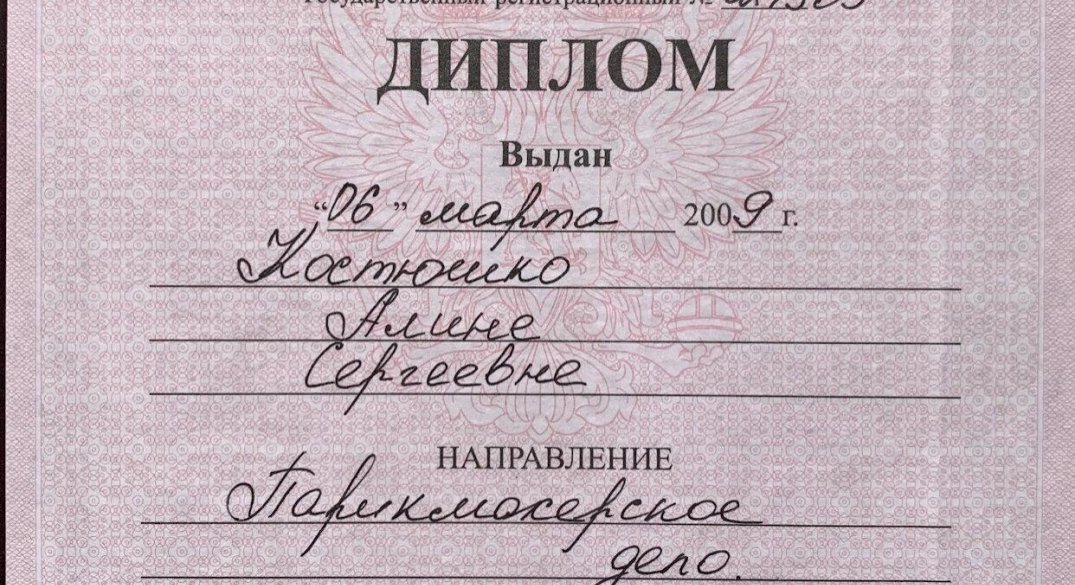 Государственный регистрационный №
ДИПЛОМ
Выдан
“06” марта 2009 г.
Костюшко
Алине
Сергеевне
НАПРАВЛЕНИЕ
Парикмахерское
дело.